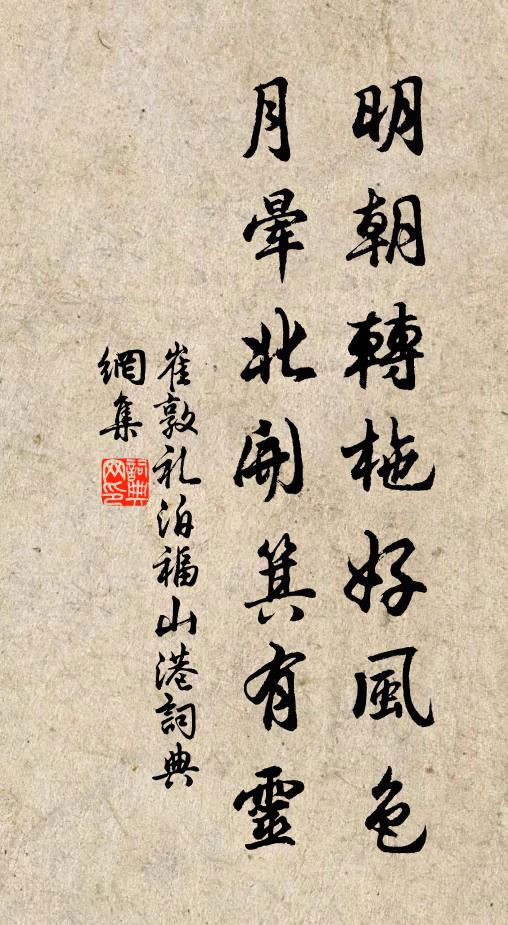 明朝轉柂好風色
月暈北開箕有靈
崔敦礼泊福山港詞典
網集
詞典
网印